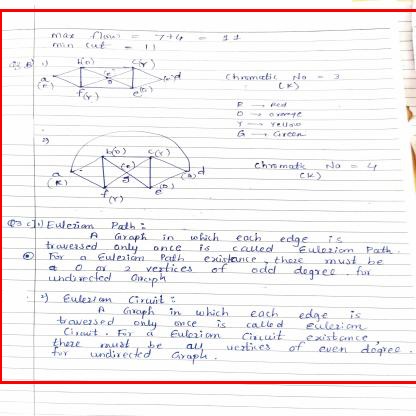 max flow = 7+4 = 11
min cut = 11
1) b(O) c(Y)
a (R) d
f(Y) e(O)
Chromatic No = 3
(K)
R → Red
O → orange
Y → yellow
G → Green
2) b(O) c(Y)
a (R) g d
f(Y) e(O)
Chromatic No = 4
(K)
Q3 c) 1) Eulerian Path :
A Graph in which each edge is
traversed only once is called Eulerian Path.
For a Eulerian Path existance, there must be
0 or 2 vertices of odd degree. for
undirected Graph
2) Eulerian Circuit :
A Graph in which each edge is
traversed only once is called Eulerian
Circuit. For a Eulerian Circuit existance,
there must be all vertices of even degree.
for undirected Graph.